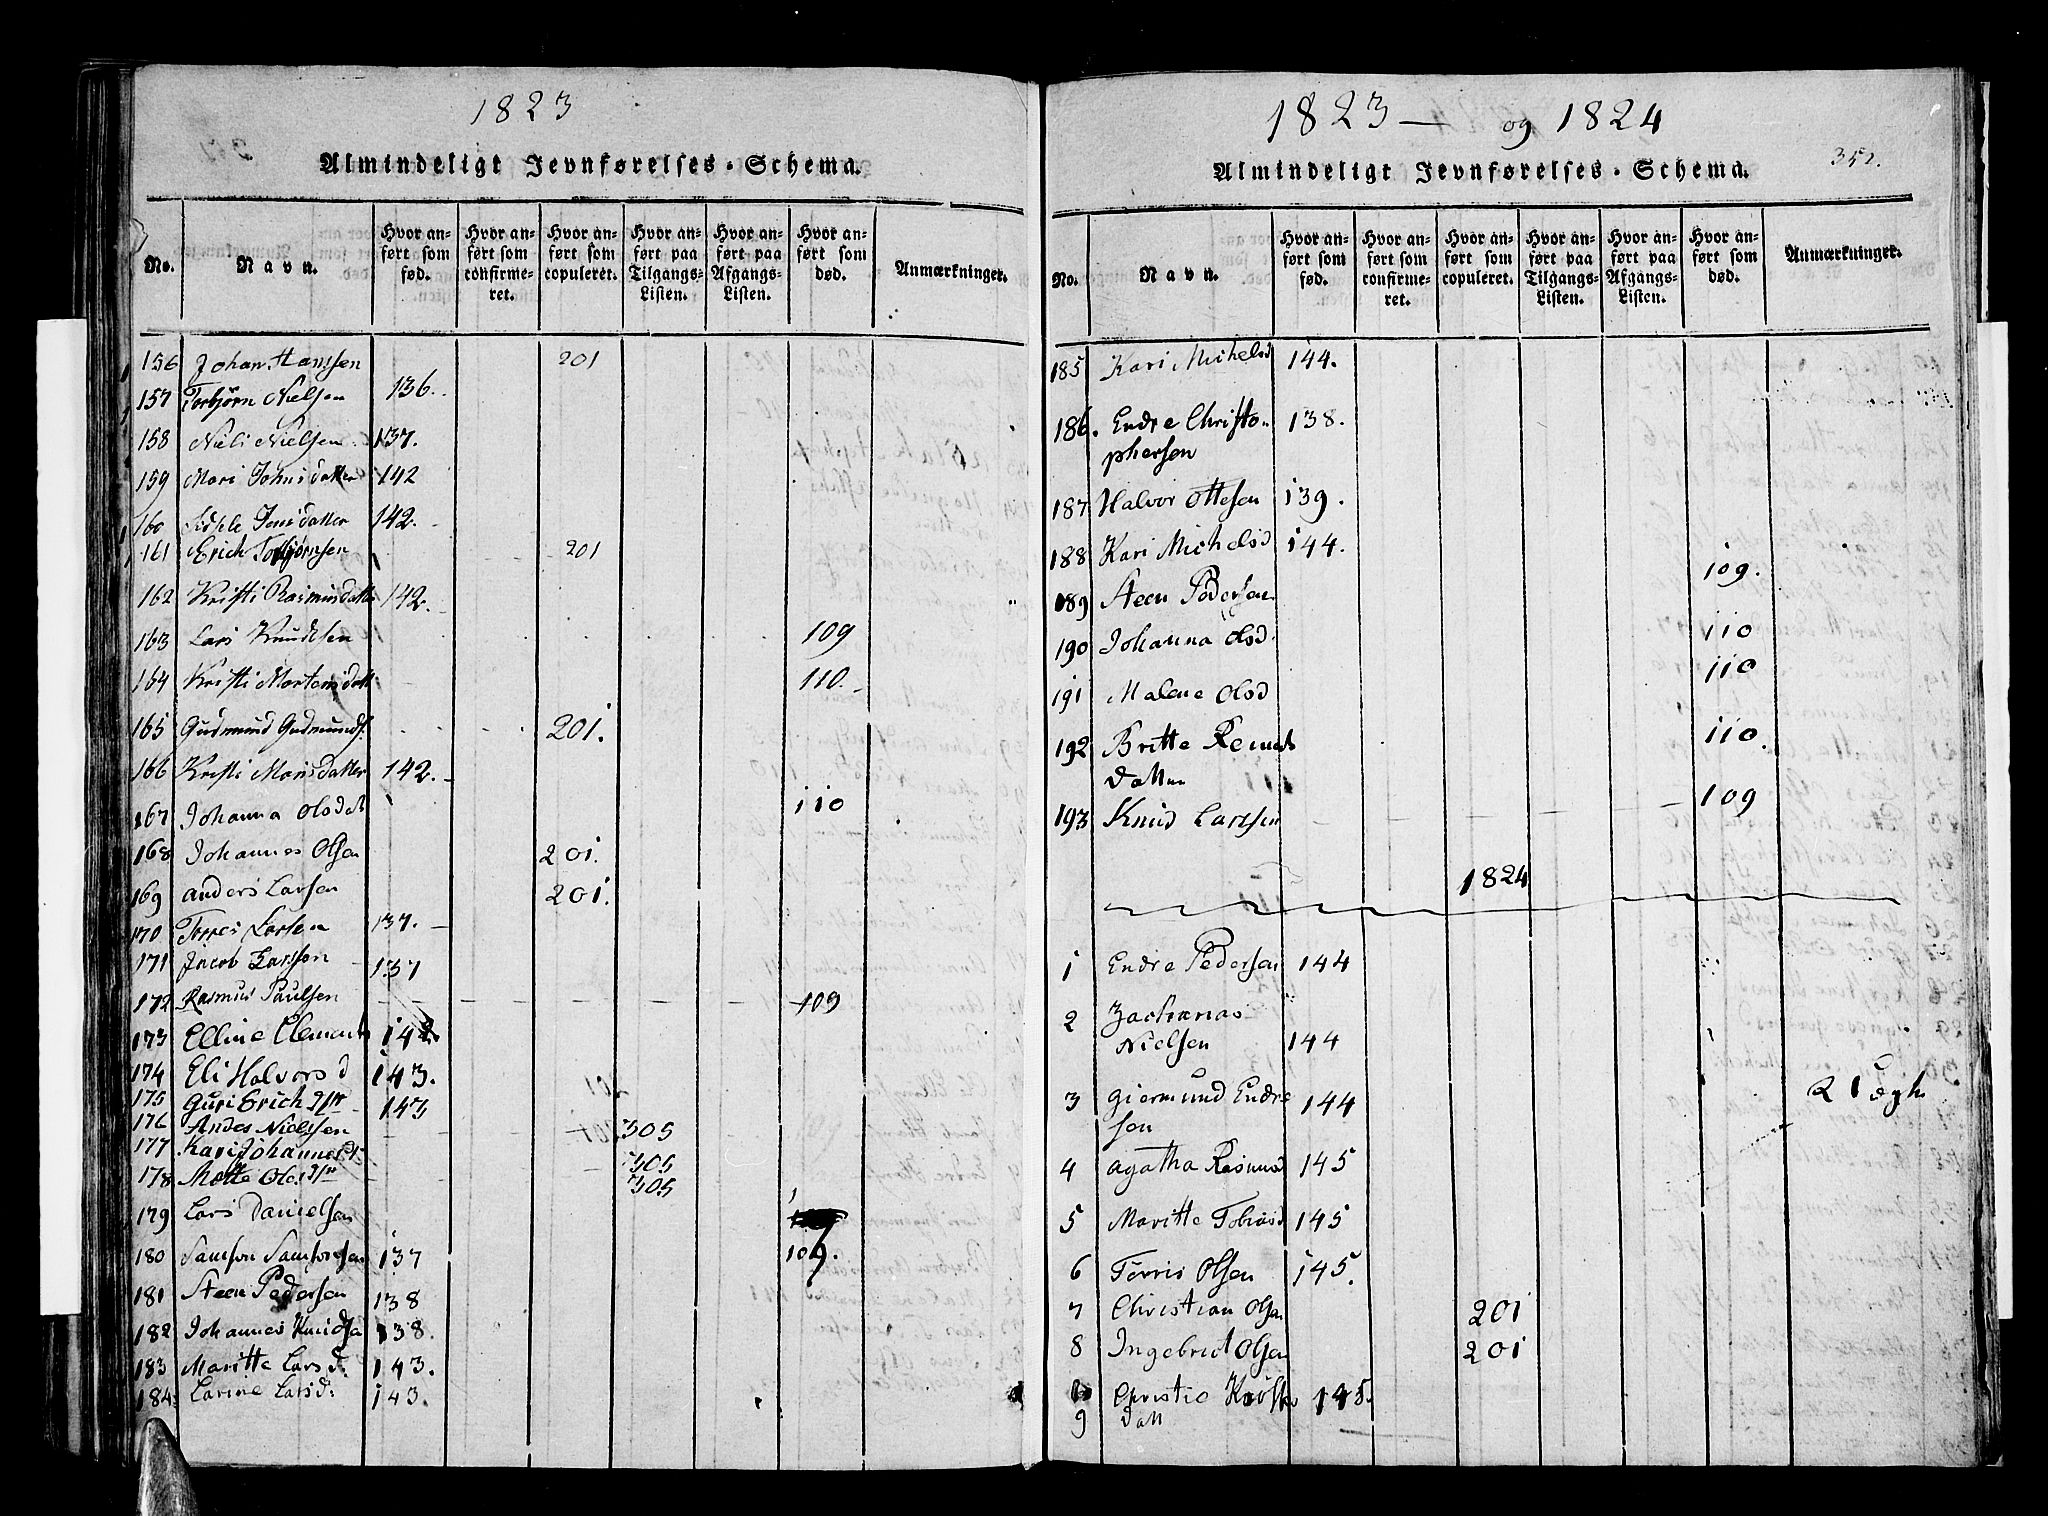 1823
Almindeligt Jevnførelses-Schema.
No. Navn. Hvor anført som fød. Hvor anført som confirmeret. Hvor anført som copuleret. Hvor anført paa Tilgangs-Listen. Hvor anført paa Afgangs-Listen. Hvor anført som død. Anmærkninger.
156 Johan Hanssen 201
157 Torbjørn Nielsen 136.
158 Nieli Nielsen 137.
159 Mari Johnsdatter 142
160 Jensdatter 142.
161 Erich Torbjørnsen 201
162 Kristi Rasmusdatter 142.
163 Lars Knudsen 109
164 Kristi Mortensdatt 110.
165 Gudmund Gudmunds. 201.
166 Kristi Monsdatter 142.
167 Johanna Olsdat 110
168 Johannes Olsen 201.
169 Anders Larsen 201.
170 Torres Larsen 137.
171 Jacob Larssen 137
172 Rasmus Paulsen 109
173 Elline Clements 142.
174 Eli Halvorsd 143.
175 Guri Erichs 143
176 Andes Nielssen 305
177 Kari Johannesd 305
178 Mette Ols 305
179 Lars Danielsen
109.
180 Samson Samsonsen 137
181 Steen Pedersen 138
182 Johannes Knudsen 138.
183 Maritte Larsd: 143.
184. Larine Larsd: 143.
1823 — og 1824
352.
Almindeligt Jevnførelses-Schema.
No. Navn. Hvor anført som fød. Hvor anført som confirmeret. Hvor anført som copuleret. Hvor anført paa Tilgangs-Listen. Hvor anført paa Afgangs-Listen. Hvor anført som død. Anmærkninger.
185 Kari Michelsd 144.
186. Endre Christo- 138.
phersen
187 Halvor Ottesen 139.
188 Kari Michelsd 144.
189 Steen Pedersen 109.
190 Johanna Olsd. 110
191 Malene Olsd 110
192 Britte 110.
datter
193 Knud Larssen 109
1824
1 Endre Pedersen 144
2 Zacharias
Nielsen 144
3 Giermund Endre 144
sen
4 Agatha Rasmusd 145
5 Maritte Tobiasd 145
6 Torris Olsen 145.
7 Christian Olsen 201
8 Ingebrict Olsen 201
9 Christie 145.
datt